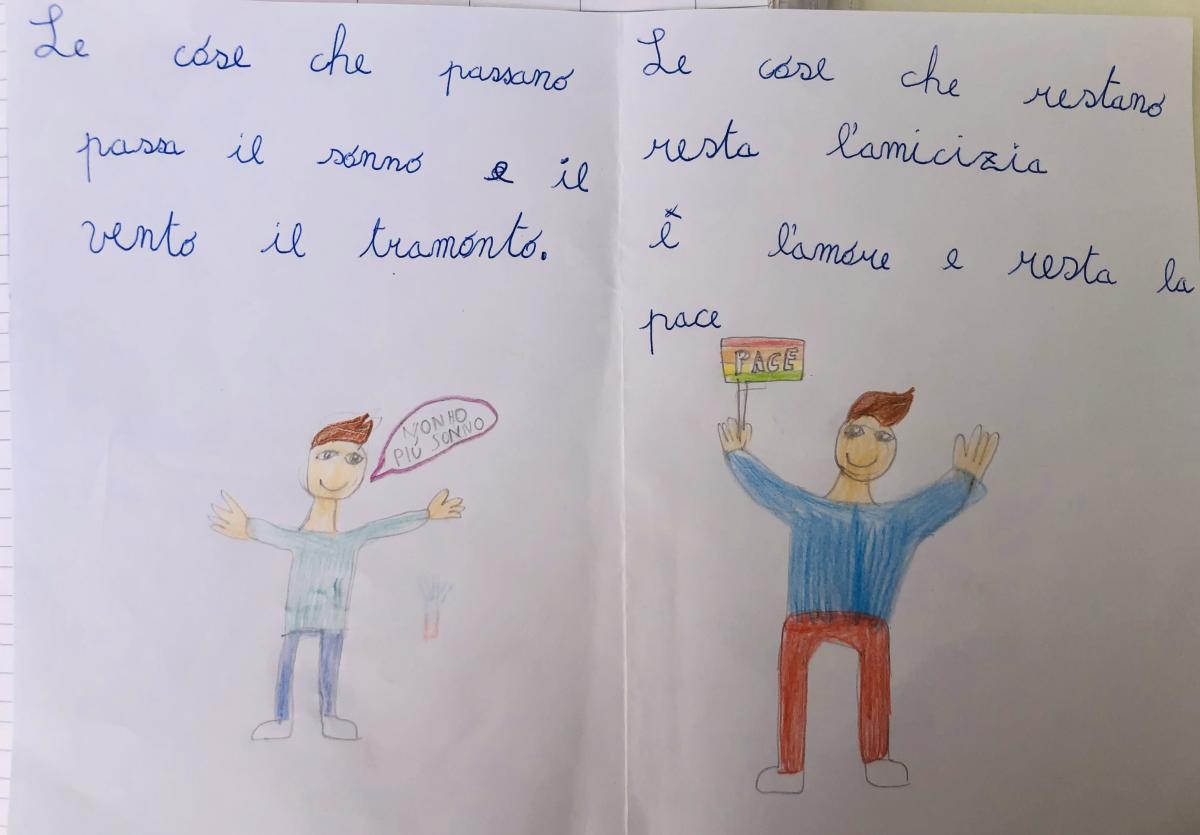 Le cose che passano
passa il sonno e il
vento il tramonto.
NON HO
PIÙ SONNO
Le cose che restano
resta l'amicizia
è l'amore e resta la
pace
PACE